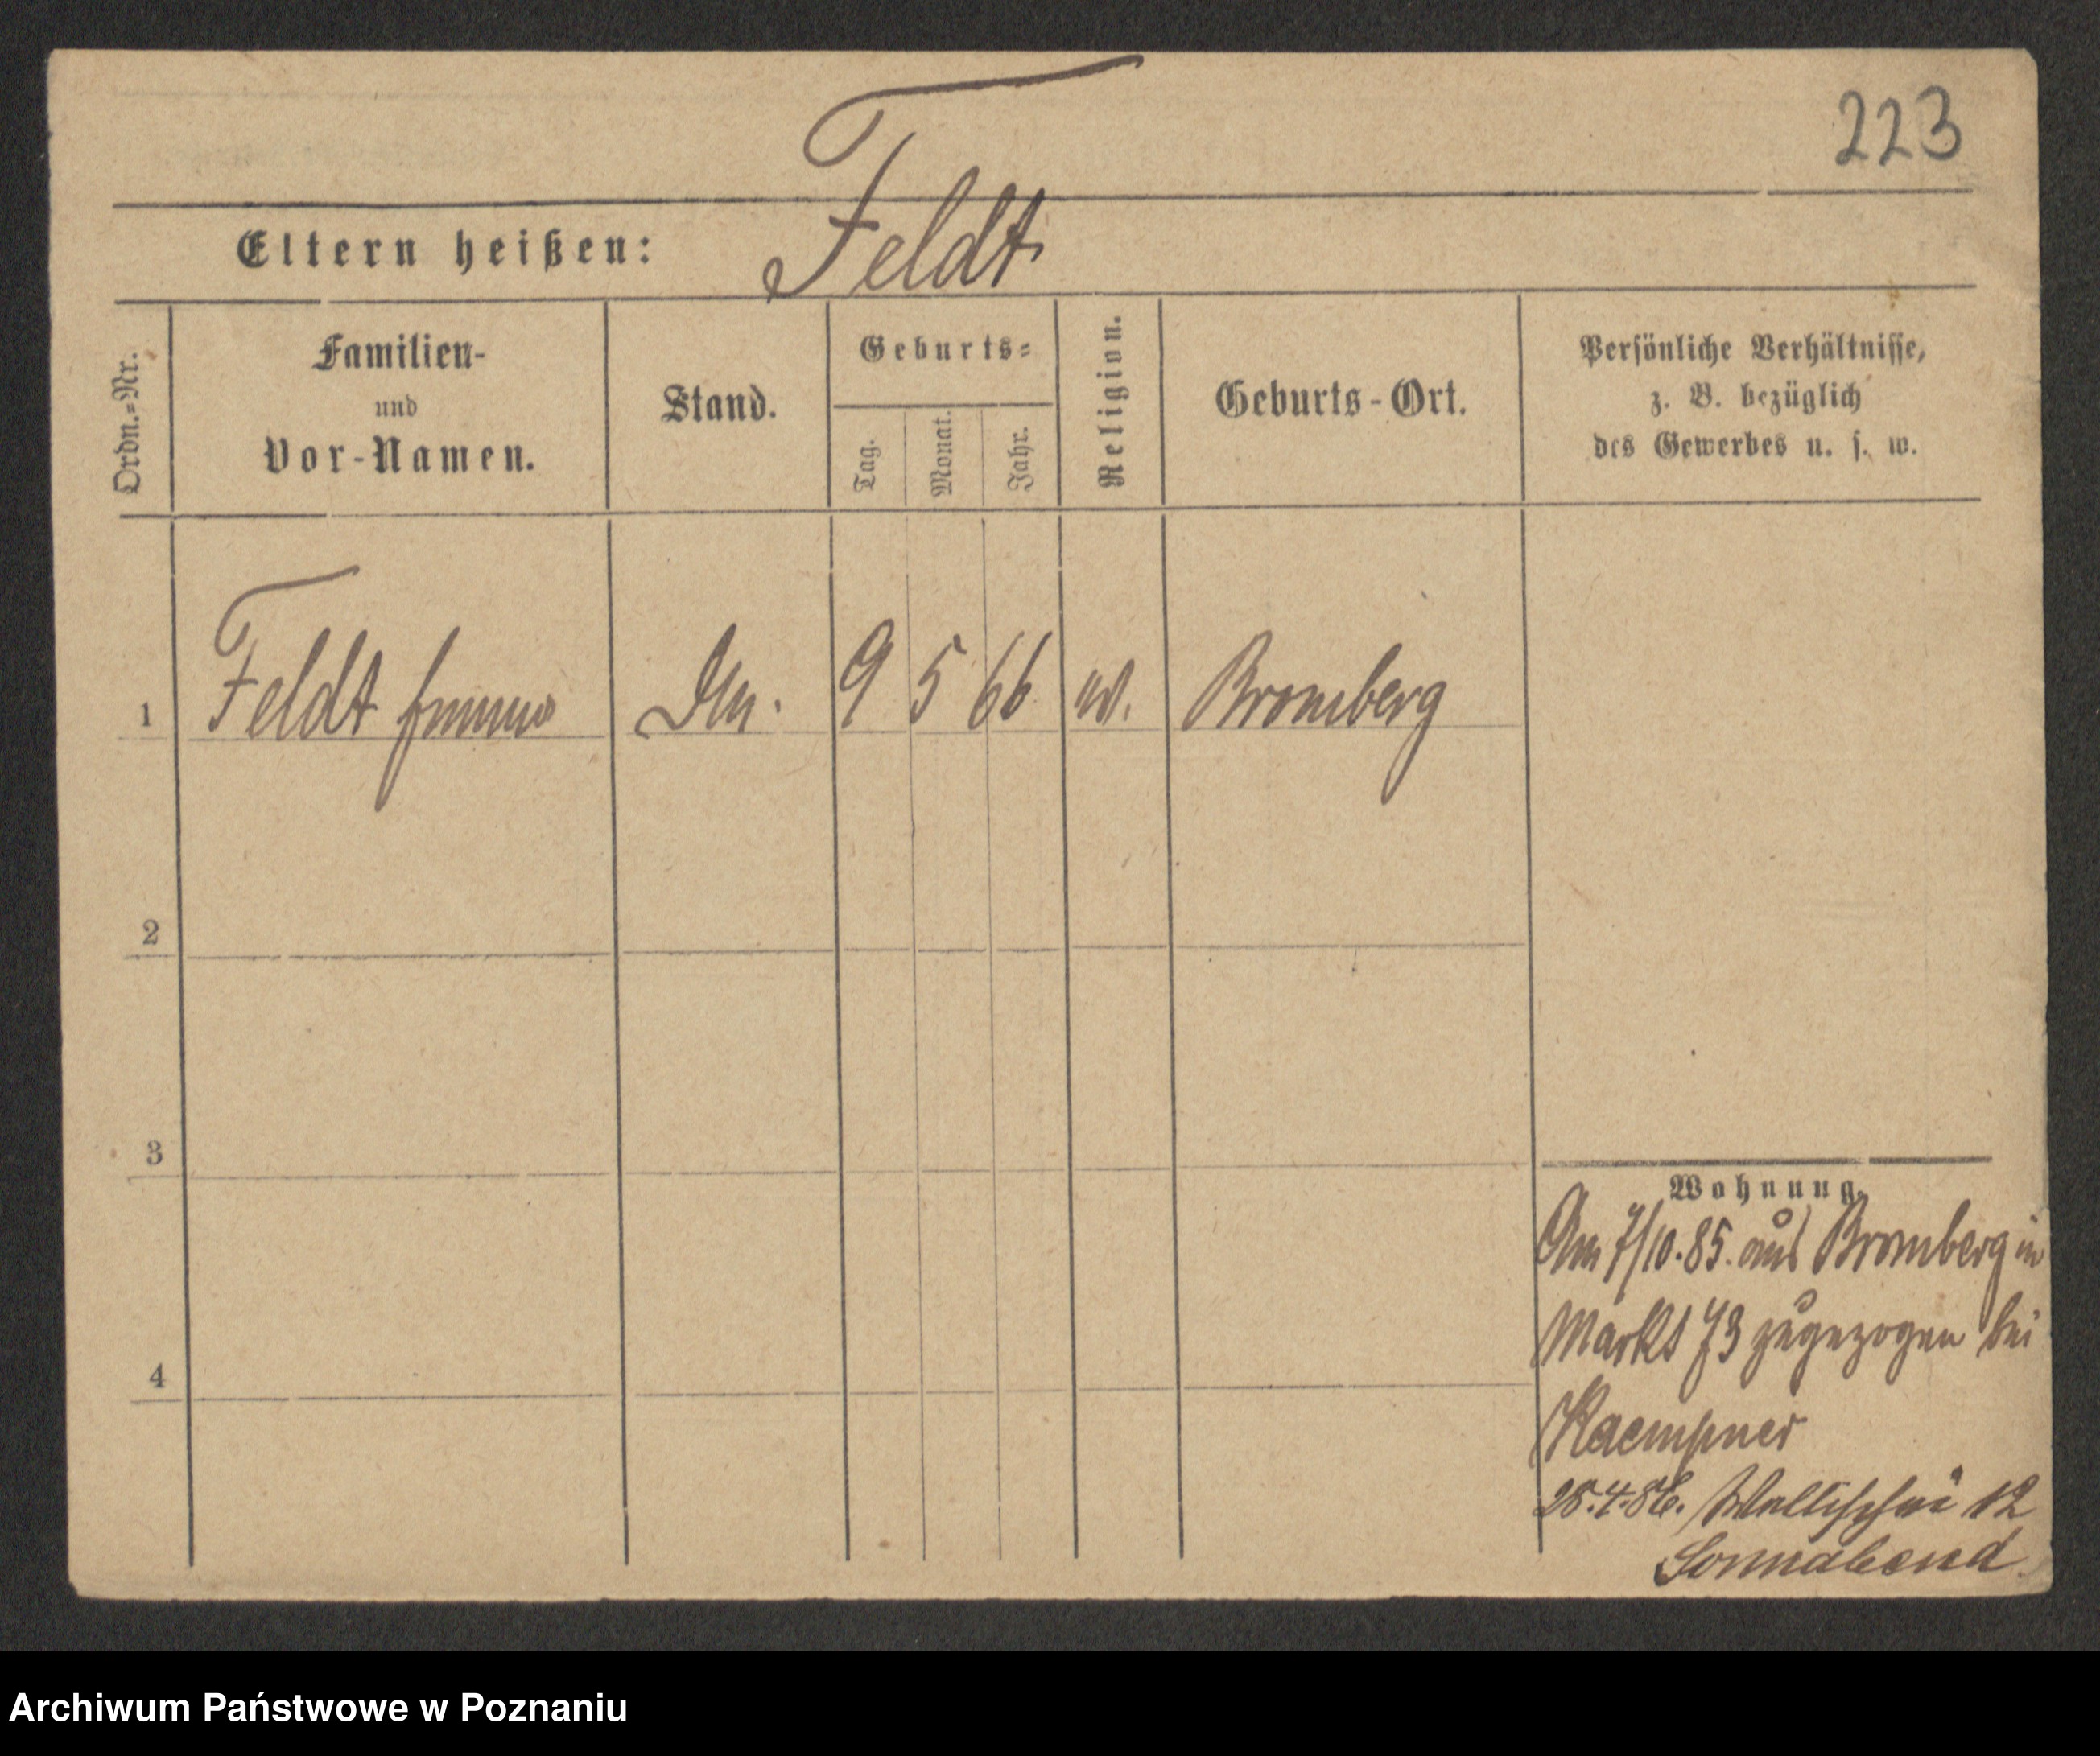 223
Eltern heißen: Feldt
Ordn.=Nr.
Familien-
und
Vor-Namen.
Stand.
Geburts=
Tag.
Monat.
Jahr.
Religion.
Geburts-Ort.
Persönliche Verhältnisse,
z. B. bezüglich
des Gewerbes u. s. w.
1 Feldt Emma 9 5 66 Bromberg
2
3
4
Wohnung.
Am 7/10.85. aus Bromberg in
Markt 73 zugezogen bei
Kaempner
28.4.86. Wallischei 12
Sonnabend
Archiwum Państwowe w Poznaniu